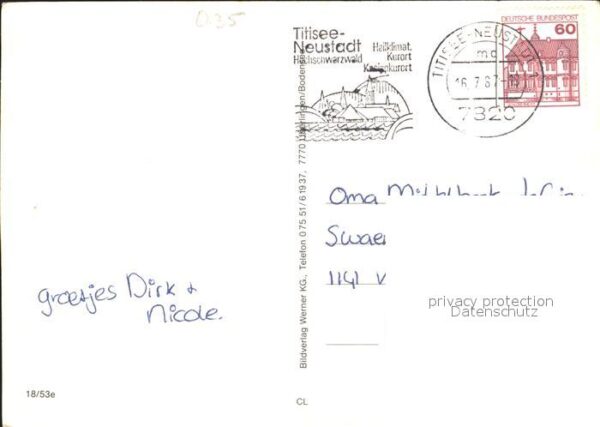 0.35
Titisee-
Neustadt
Hochschwarzwald
Heilklimat.
Kurort
Kneippkurort
TITISEE-NEUSTADT 1
md
16.7.87
7820
DEUTSCHE BUNDESPOST
60
Bildverlag Werner KG., Telefon 0 75 51/6 19 37, 7770 Überlingen/Bodensee
Oma
Swae
1141 V
groetjes Dirk +
Nicole.
privacy protection
Datenschutz
18/53e
CL